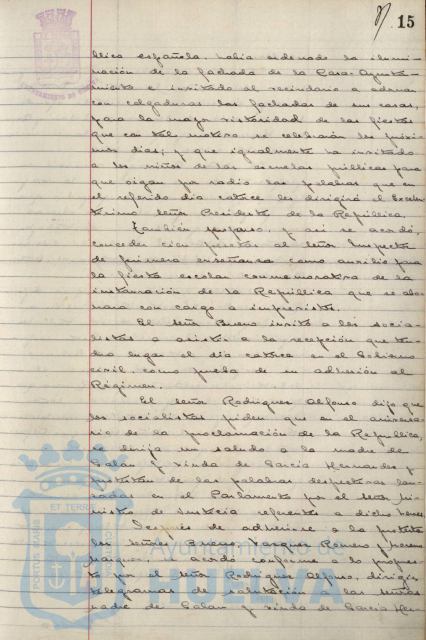 15
blica española, había ordenado la ilumi-
nación de la fachada de la Casa-Ayunta-
miento e invitado al vecindario a adornar
con colgaduras las fachadas de sus casas,
para la mayor vistosidad de las fiestas
que con tal motivo se celebrarán los próxi-
mos días; y que igualmente ha invitado
a los niños de las escuelas públicas para
que oigan por radio las palabras que en
el referido día catorce les dirigirá el Excelen-
tísimo señor Presidente de la República.
También propuso, y así se acordó,
conceder cien pesetas al señor Inspector
de primera enseñanza como auxilio para
la fiesta escolar conmemorativa de la
instauración de la República que se abo-
nara con cargo a imprevistos.
El señor Bueno invitó a los socia-
listas a asistir a la recepción que ten-
drá lugar el día catorce en el Gobierno
civil, como prueba de su adhesión al
Régimen.
El señor Rodríguez Alfonso dijo que
los socialistas piden que en el aniversa-
rio de la proclamación de la República,
se dirija un saludo a la madre de
Galán y viuda de García Hernández y
protesten de las palabras despectivas lan-
zadas en el Parlamento por el señor Mi-
nistro de Justicia referentes a dichos heroes.
Después de adherirse a la protesta
los señores Bueno, Vázquez Romero y
Márquez, se acordó conforme a lo propues-
to por el señor Rodríguez Alfonso, dirigir
telegramas de salutación a las señoras
madre de Galán y viuda de García Her-
Ayuntamiento de
HUELVA
PORTUS MARIS
ET TERRAE